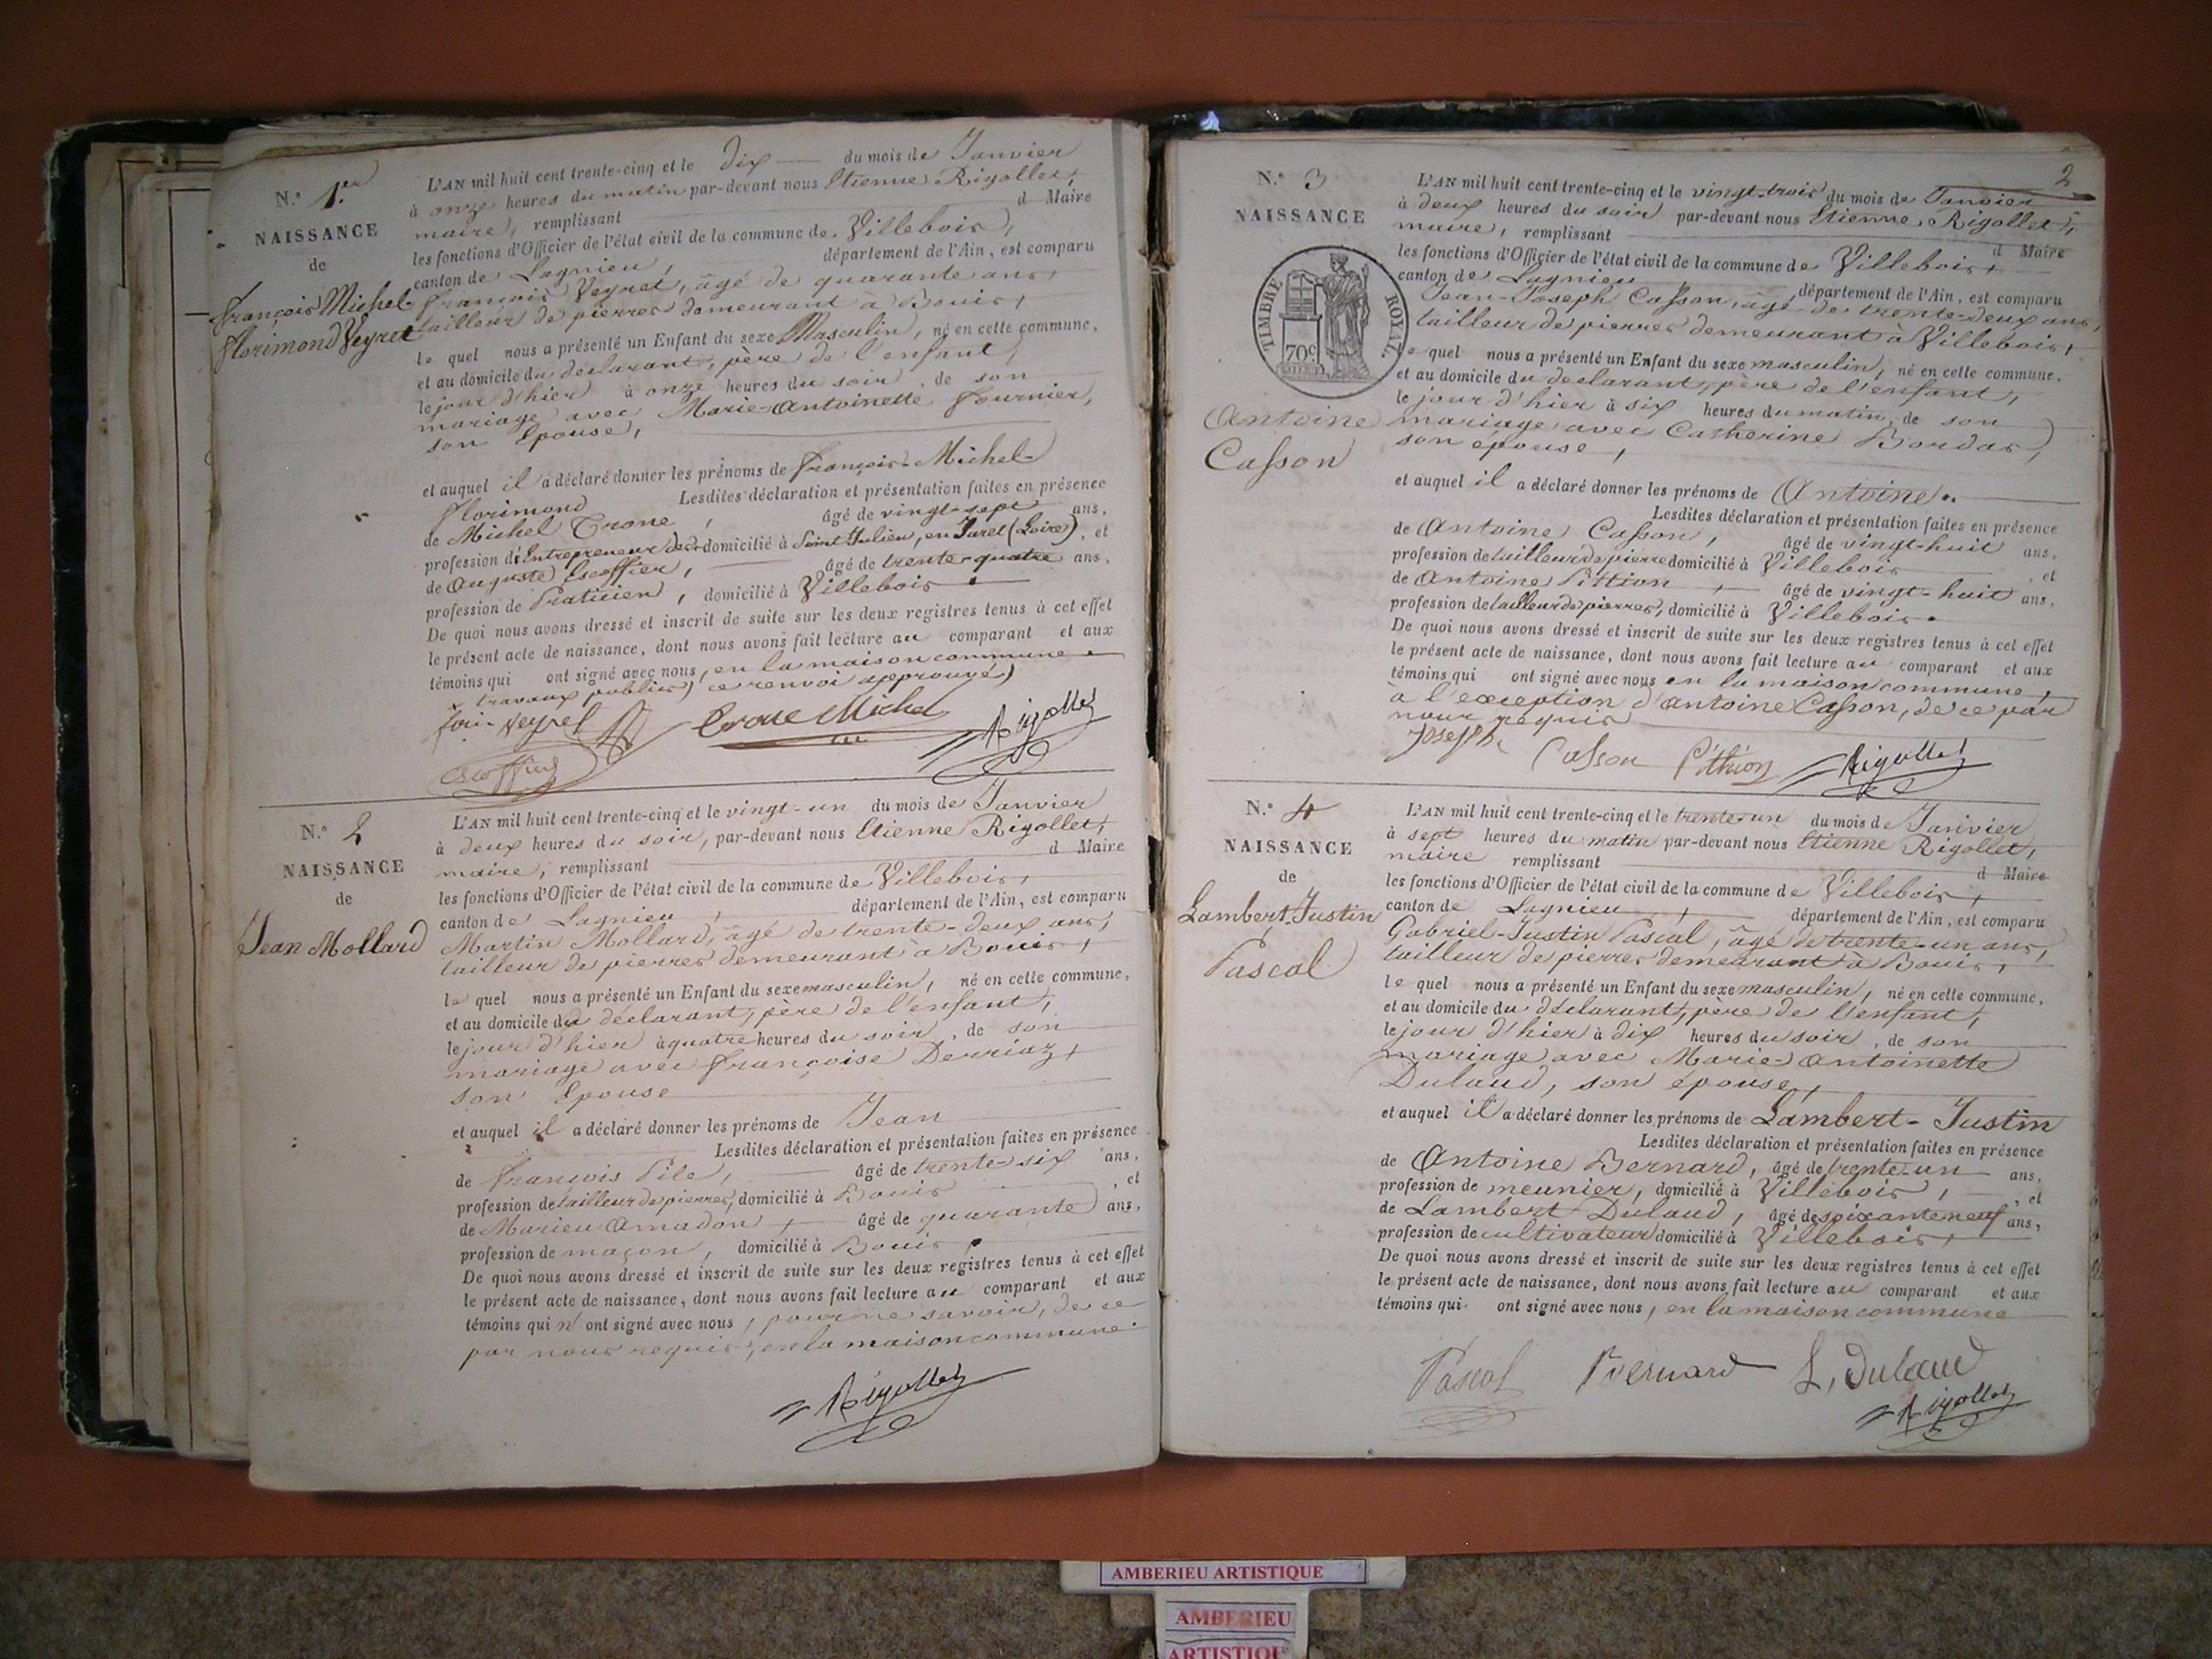 N.° 1.er
NAISSANCE
de
François Michel-
florimond Veyret
L'AN mil huit cent trente-cinq et le dix du mois de Janvier
à onze heures du matin par-devant nous Etienne Rigollet,
maire, remplissant d Maire
les fonctions d'Officier de l'état civil de la commune de Villebois,
canton de Lagnieu, département de l'Ain, est comparu
françois Veyret, âgé de quarante ans,
tailleur de pierres demeurant à Bouis,
le quel nous a présenté un Enfant du sexe Masculin, né en cette commune,
et au domicile du déclarant, père de l'enfant,
le jour d'hier à onze heures du soir, de son
mariage avec Marie-Antoinette fournier,
son Epouse,
et auquel il a déclaré donner les prénoms de françois-Michel-
florimond Lesdites déclaration et présentation faites en présence
de Michel Crone, âgé de vingt-sept ans,
profession d'Entrepreneur de domicilié à Saint Julien, en Jaret (Loire), et
de Auguste Escoffier, âgé de trente-quatre ans,
profession de Praticien, domicilié à Villebois.
De quoi nous avons dressé et inscrit de suite sur les deux registres tenus à cet effet
le présent acte de naissance, dont nous avons fait lecture au comparant et aux
témoins qui ont signé avec nous, en la maison commune.
travaux publics) ce renvoi approuvé)
Veyret Crone Michel Rigollet
Escoffier
N.° 2
NAISSANCE
de
Jean Mollard
L'AN mil huit cent trente-cinq et le vingt-un du mois de Janvier
à deux heures du soir, par-devant nous Etienne Rigollet,
maire, remplissant d Maire
les fonctions d'Officier de l'état civil de la commune de Villebois,
canton de Lagnieu, département de l'Ain, est comparu
Martin Mollard, âgé de trente-deux ans,
tailleur de pierres demeurant à Bouis,
le quel nous a présenté un Enfant du sexe masculin, né en cette commune,
et au domicile du déclarant, père de l'enfant,
le jour d'hier à quatre heures du soir, de son
mariage avec françoise Derriaz,
son Epouse
et auquel il a déclaré donner les prénoms de Jean
Lesdites déclaration et présentation faites en présence
de françois Pile, âgé de trente-six ans,
profession de tailleur de pierres, domicilié à Bouis, et
de Marieu Amadon, âgé de quarante ans,
profession de maçon, domicilié à Bouis.
De quoi nous avons dressé et inscrit de suite sur les deux registres tenus à cet effet
le présent acte de naissance, dont nous avons fait lecture au comparant et aux
témoins qui n'ont signé avec nous, pour ne savoir, de ce
par nous requis, en la maison commune.
Rigollet
2
N.° 3
NAISSANCE
TIMBRE ROYAL
70c
Antoine
Casson
L'AN mil huit cent trente-cinq et le vingt-trois du mois de Janvier
à deux heures du soir par-devant nous Etienne Rigollet,
maire, remplissant d Maire
les fonctions d'Officier de l'état civil de la commune de Villebois,
canton de Lagnieu, département de l'Ain, est comparu
Jean-Joseph Casson, âgé de trente-deux ans,
tailleur de pierres demeurant à Villebois,
le quel nous a présenté un Enfant du sexe masculin, né en cette commune,
et au domicile du déclarant, père de l'enfant,
le jour d'hier à six heures du matin, de son
mariage avec Catherine Bordas,
son épouse,
et auquel il a déclaré donner les prénoms de Antoine.
Lesdites déclaration et présentation faites en présence
de Antoine Casson, âgé de vingt-huit ans,
profession de tailleur de pierre domicilié à Villebois, et
de Antoine Pittion, âgé de vingt-huit ans,
profession de tailleur de pierres, domicilié à Villebois.
De quoi nous avons dressé et inscrit de suite sur les deux registres tenus à cet effet
le présent acte de naissance, dont nous avons fait lecture au comparant et aux
témoins qui ont signé avec nous en la maison commune,
à l'exception d'antoine Casson, de ce par
nous requis
Joseph Casson Pithion Rigollet
N.° 4
NAISSANCE
de
Lambert-Justin
Pascal
L'AN mil huit cent trente-cinq et le trente-un du mois de Janvier
à sept heures du matin par-devant nous Etienne Rigollet,
maire remplissant d Maire
les fonctions d'Officier de l'état civil de la commune de Villebois,
canton de Lagnieu, département de l'Ain, est comparu
Gabriel-Justin Pascal, âgé de trente-un ans,
tailleur de pierres demeurant à Bouis,
le quel nous a présenté un Enfant du sexe masculin, né en cette commune,
et au domicile du déclarant, père de l'enfant,
le jour d'hier à dix heures du soir, de son
mariage avec Marie-Antoinette
Dulaud, son épouse,
et auquel il a déclaré donner les prénoms de Lambert-Justin
Lesdites déclaration et présentation faites en présence
de Antoine Bernard, âgé de trente-un ans,
profession de meunier, domicilié à Villebois, et
de Lambert Dulaud, âgé de soixante neuf ans,
profession de cultivateur domicilié à Villebois,
De quoi nous avons dressé et inscrit de suite sur les deux registres tenus à cet effet
le présent acte de naissance, dont nous avons fait lecture au comparant et aux
témoins qui ont signé avec nous, en la maison commune
Pascal Bernard L, Dulaud
Rigollet
AMBERIEU ARTISTIQUE
AMBERIEU
ARTISTIQUE